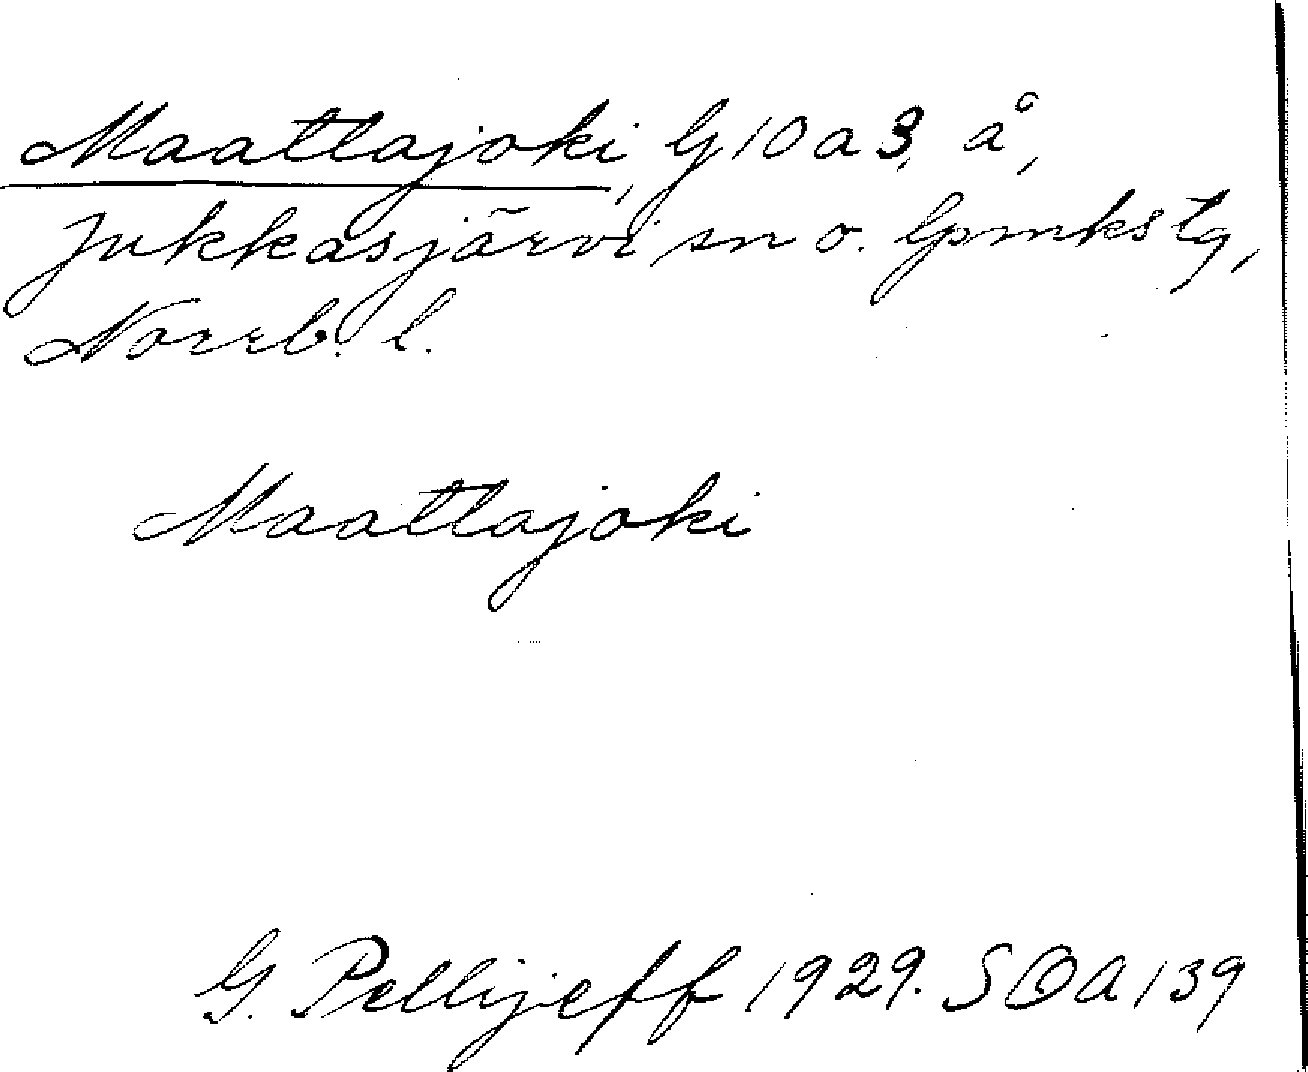 Maattajoki, G10a3, å,
Jukkasjärvi sn o. lpmkstg,
Norrb. l.
Maattajoki
G. Pellijeff 1929. SOA 139